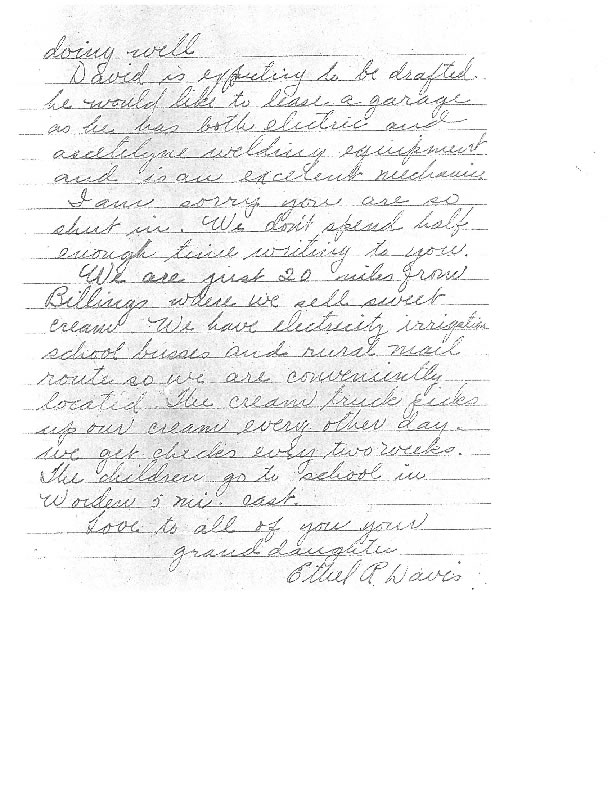 doing well
David is expecting to be drafted.
he would like to lease a garage
as he has both electric and
ascetilyne welding equipment
and is an excelent mechanic
I am sorry you are so
shut in. We don't spend half
enough time writing to you.
We are just 20 miles from
Billings where we sell sweet
cream. We have electricity, irrigation
school busses and rural mail
route so we are conveniently
located. The cream truck picks
up our cream every other day.
we get checks every two weeks.
The children go to school in
Worden 5 mi. east.
Love to all of you your
grand daughter
Ethel R. Davis